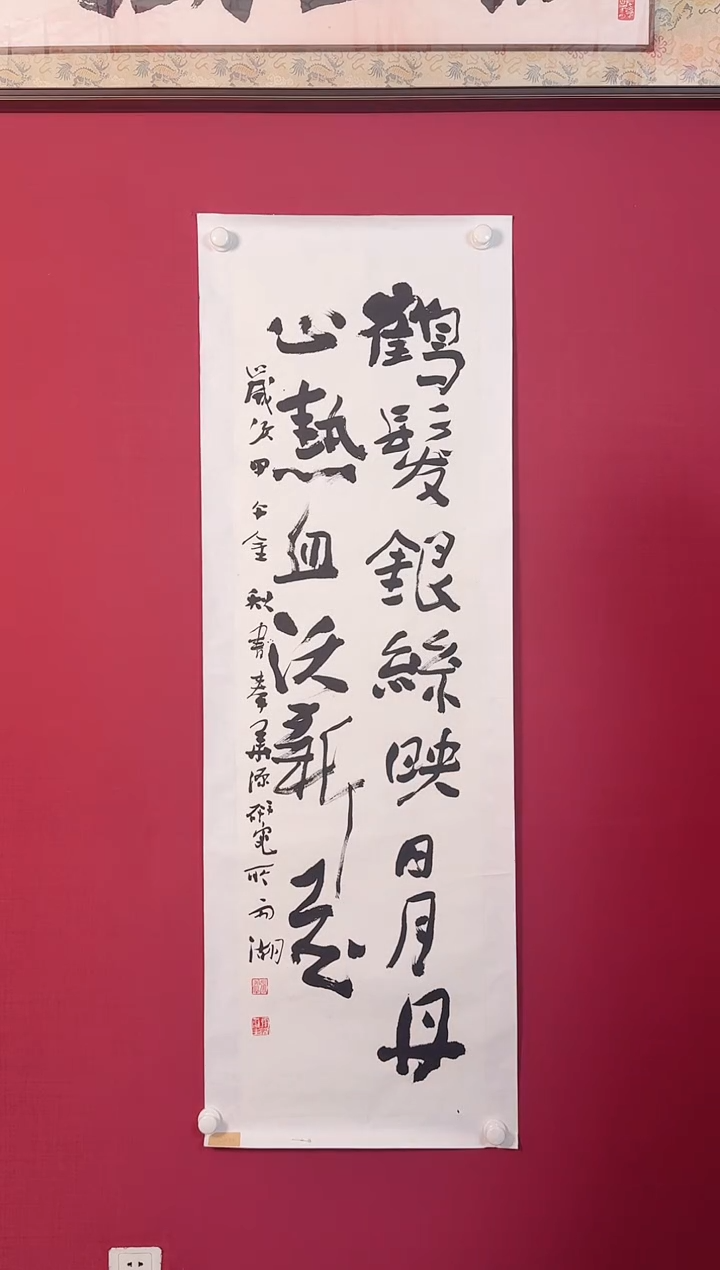 鶴髮銀絲映日月丹
心熱血沃新花
歲次甲午金秋書秦華源研究所南湖